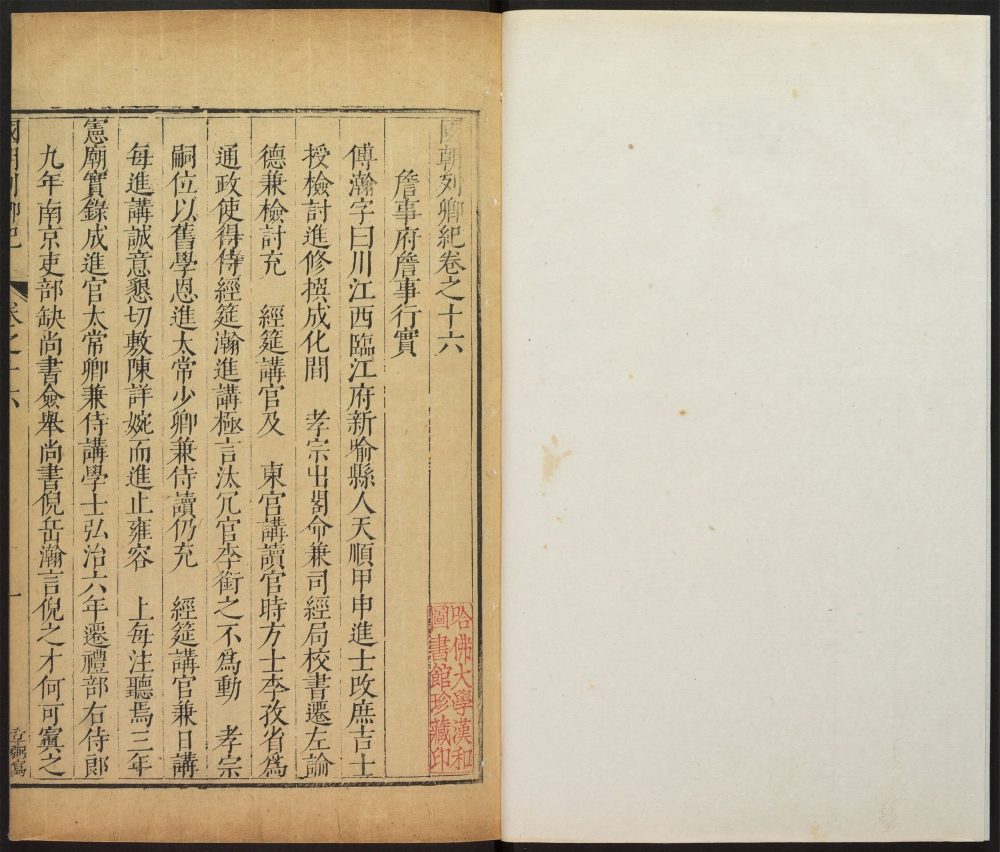 國朝列卿紀卷之十六
詹事府詹事行實
傅瀚字曰川江西臨江府新喻縣人天順甲申進士改庶吉士
授檢討進修撰成化間 孝宗出閣命兼司經局校書遷左諭
德兼檢討充 經筵講官及 東宮講讀官時方士李孜省爲
通政使得侍經筵瀚進講極言汰冗官李銜之不爲動 孝宗
嗣位以舊學恩進太常少卿兼侍讀仍充 經筵講官兼日講
每進講誠意懇切敷陳詳婉而進止雍容 上每注聽焉三年
憲廟實錄成進官太常卿兼侍講學士弘治六年遷禮部右侍郎
九年南京吏部缺尚書僉舉尚書倪岳瀚言倪之才何可寘之
國朝列卿紀 卷之十六 一
哈佛大學漢和
圖書館珍藏印